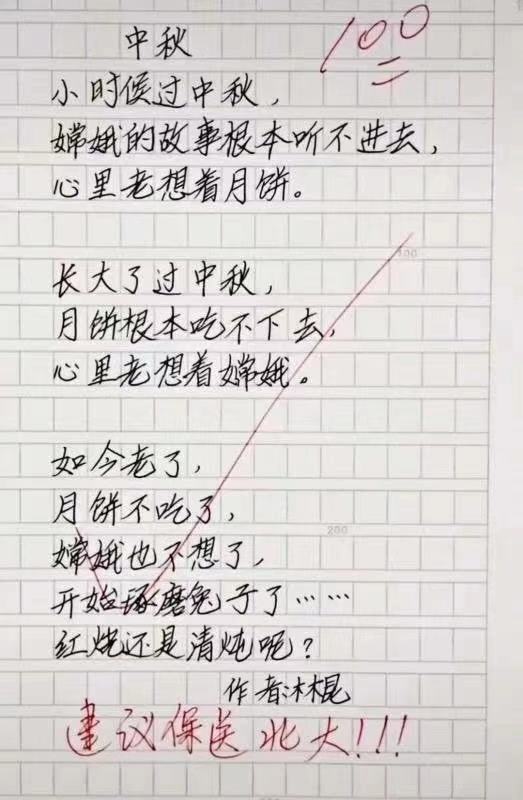 中秋
100
小时候过中秋，
嫦娥的故事根本听不进去，
心里老想着月饼。
长大了过中秋，
100
月饼根本吃不下去，
心里老想着嫦娥。
如今老了，
月饼不吃了，
200
嫦娥也不想了，
开始琢磨兔子了……
红烧还是清炖呢？
作者:木棍
建议保送北大!!!